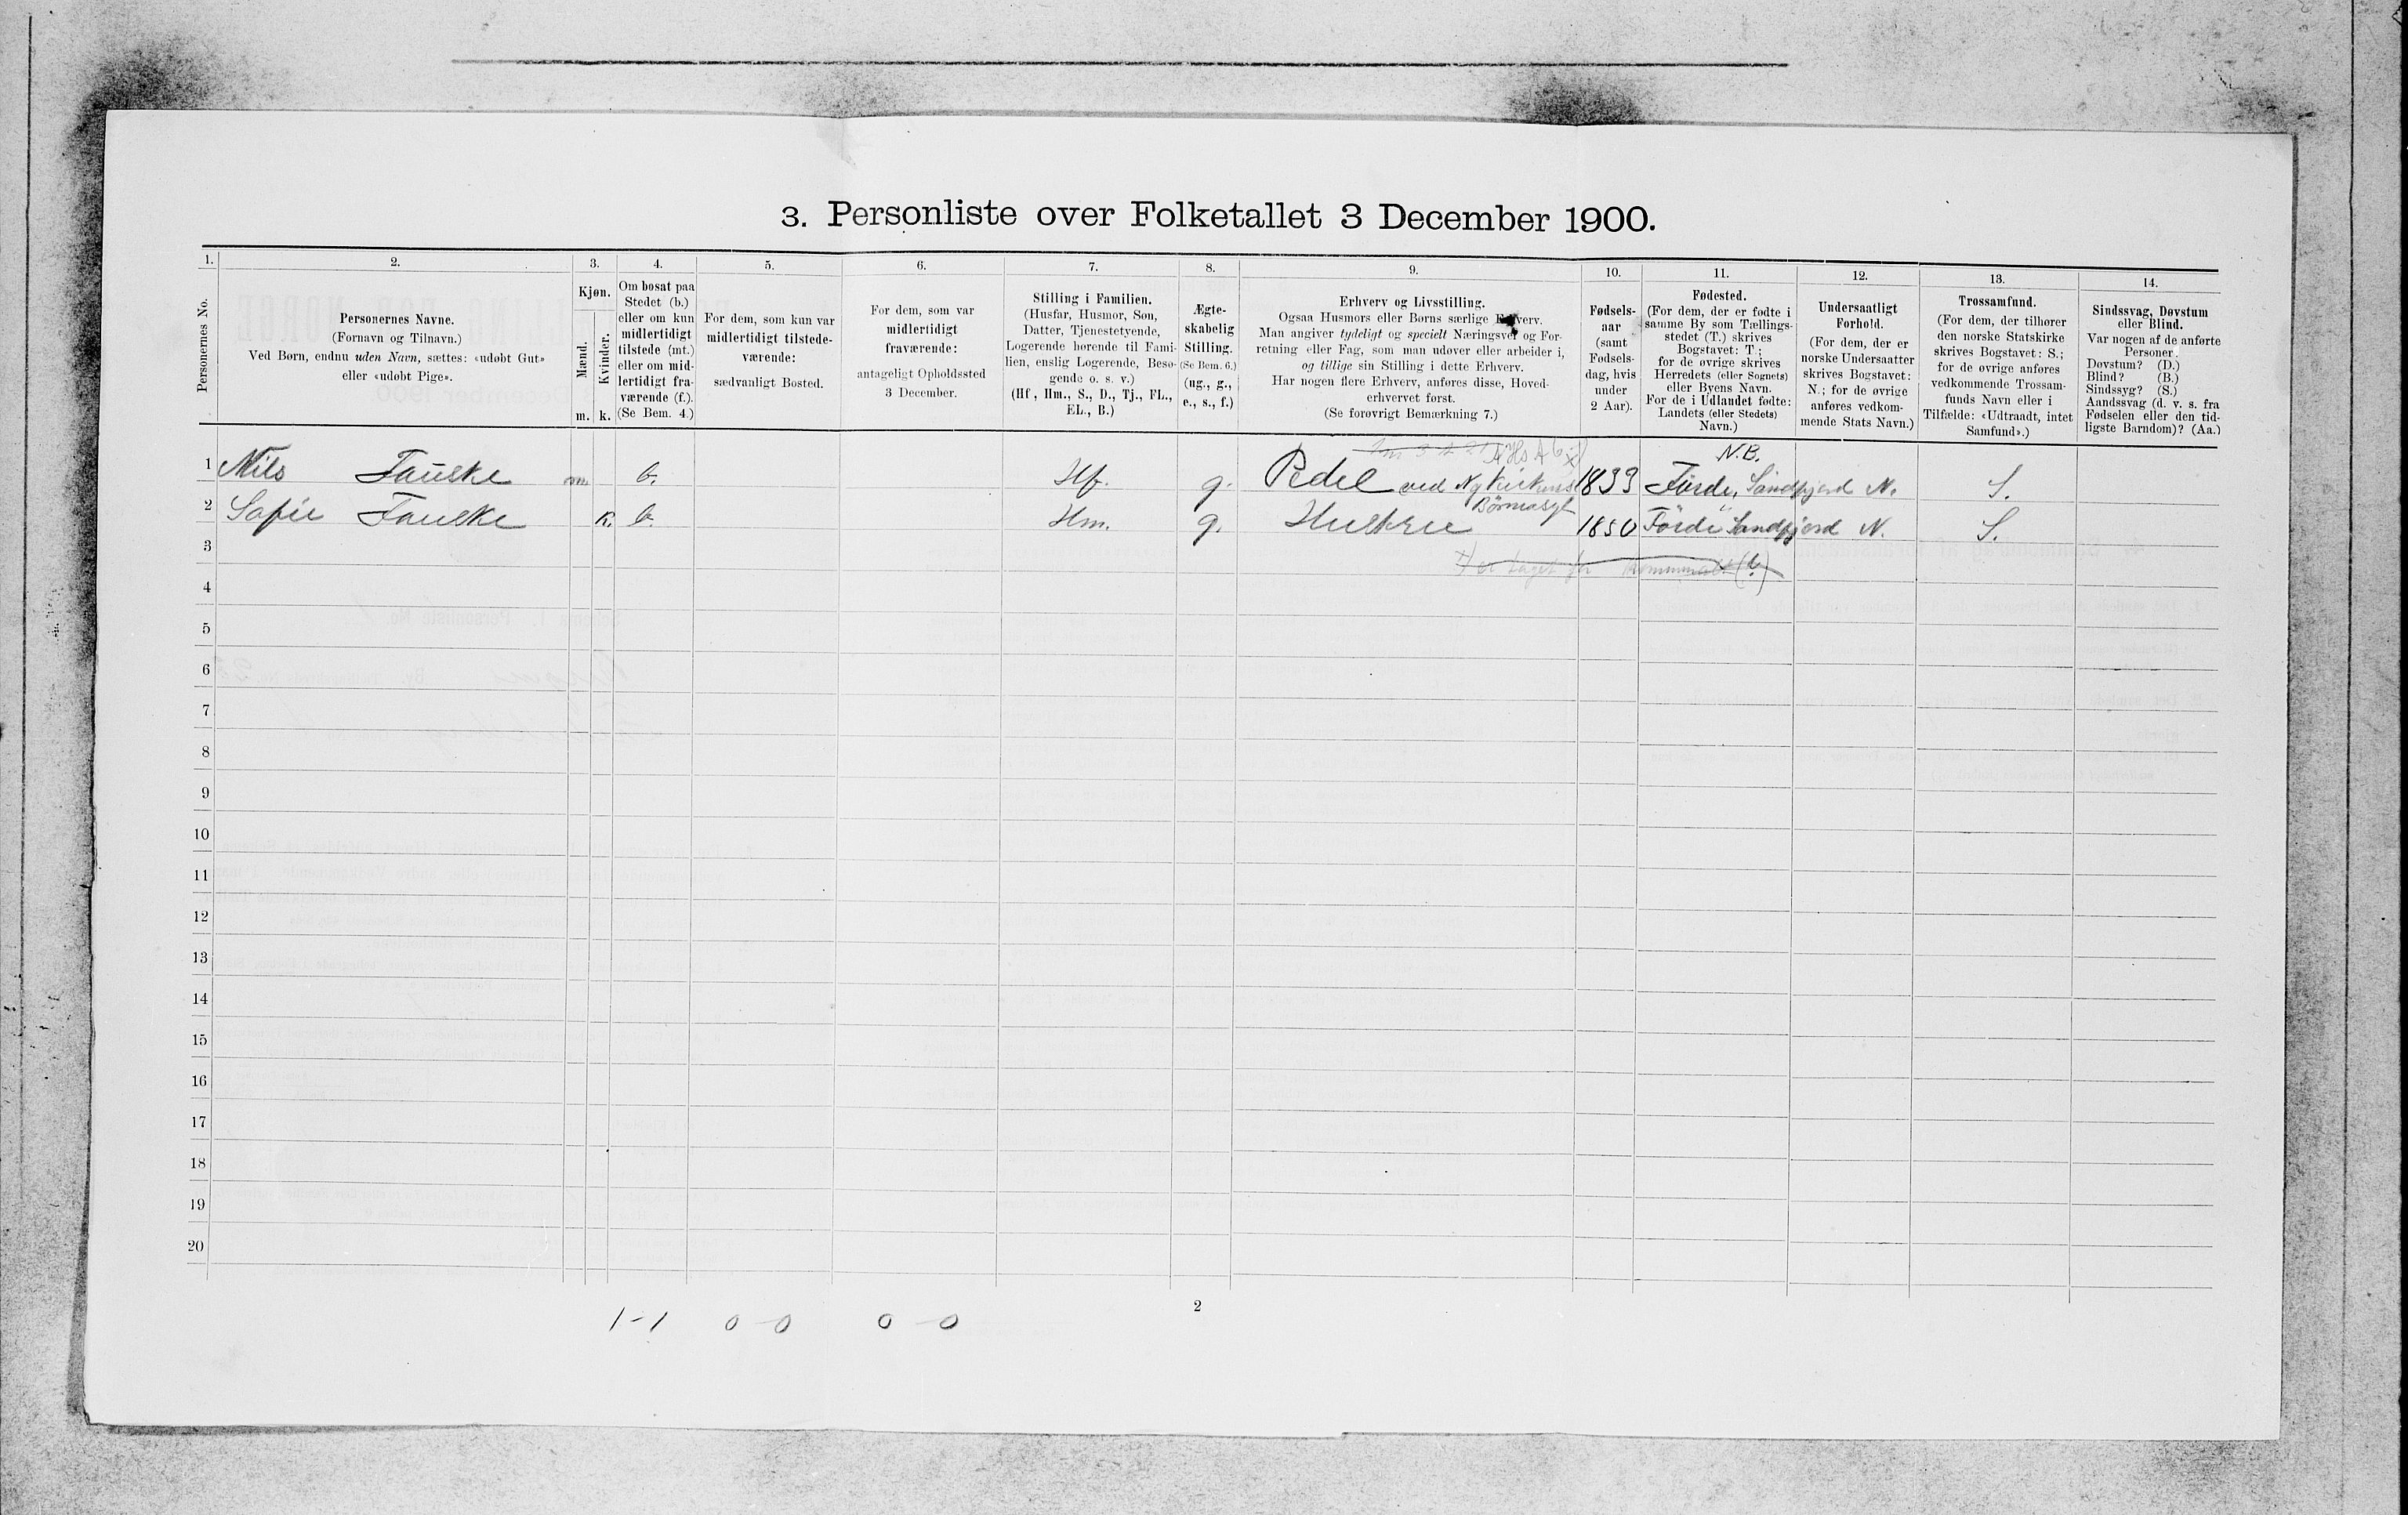 3. Personliste over Folketallet 3 December 1900.
1. 2. 3. 4. 5. 6. 7. 8. 9. 10. 11. 12. 13. 14.
Personernes No.
Personernes Navne.
(Fornavn og Tilnavn.)
Ved Børn, endnu uden Navn, sættes: «udøbt Gut»
eller «udøbt Pige».
Kjøn.
Mænd.
Kvinder.
m. k.
Om bosat paa
Stedet (b.)
eller om kun
midlertidigt
tilstede (mt.)
eller om mid-
lertidigt fra-
værende (f.).
(Se Bem. 4.)
For dem, som kun var
midlertidigt tilstede-
værende:
sædvanligt Bosted.
For dem, som var
midlertidigt
fraværende:
antageligt Opholdssted
3 December.
Stilling i Familien.
(Husfar, Husmor, Søn,
Datter, Tjenestetyende,
Logerende hørende til Fami-
lien, enslig Logerende, Besø-
gende o. s. v.)
(Hf., Hm., S., D., Tj., FL.,
EL., B.)
Ægte-
skabelig
Stilling.
(Se Bem. 6.)
(ug., g.,
e., s., f.)
Erhverv og Livsstilling.
Ogsaa Husmors eller Børns særlige Erhverv.
Man angiver tydeligt og specielt Næringsvei og For-
retning eller Fag, som man udøver eller arbeider i,
og tillige sin Stilling i dette Erhverv.
Har nogen flere Erhverv, anføres disse, Hoved-
erhvervet først.
(Se forøvrigt Bemærkning 7.)
Fødsels-
aar
(samt
Fødsels-
dag, hvis
under
2 Aar).
Fødested.
(For dem, der er fødte i
samme By som Tællings-
stedet (T.) skrives
Bogstavet: T.;
for de øvrige skrives
Herredets (eller Sognets)
eller Byens Navn.
For de i Udlandet fødte:
Landets (eller Stedets)
Navn.)
Undersaatligt
Forhold.
(For dem, der er
norske Undersaatter
skrives Bogstavet:
N.; for de øvrige
anføres vedkom-
mende Stats Navn.)
Trossamfund.
(For dem, der tilhører
den norske Statskirke
skrives Bogstavet: S.;
for de øvrige anføres
vedkommende Trossam-
funds Navn eller i
Tilfælde: «Udtraadt, intet
Samfund».)
Sindssvag, Døvstum
eller Blind.
Var nogen af de anførte
Personer:
Døvstum? (D.)
Blind? (B.)
Sindssyg? (S.)
Aandssvag (d. v. s. fra
Fødselen eller den tid-
ligste Barndom)? (Aa.)
N.B.
1 Nils Fauske m b. Hf. g. Pedel ved Nykirkens 1833 Førde, Søndfjord N. S.
Børneasyl
2 Sofie Fauske k. b. Hm. g. Hustru 1850 Førde Søndfjord N. S.
3
4
5
6
7
8
9
10
11
12
13
14
15
16
17
18
19
20
2
1-1 0-0 0-0